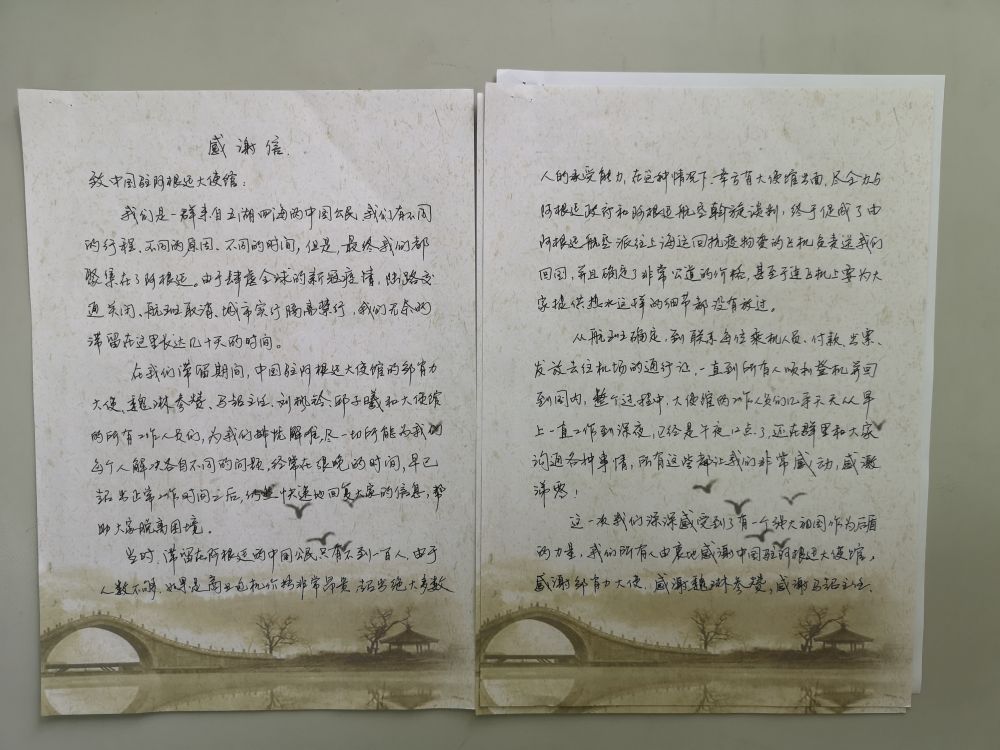 感谢信
致中国驻阿根廷大使馆：
我们是一群来自五湖四海的中国公民，我们有不同
的行程、不同的原因、不同的时间，但是，最终我们都
聚集在了阿根廷。由于肆虐全球的新冠疫情，陆路交
通关闭、航班取消、城市实行隔离禁行，我们无奈的
滞留在这里长达几十天的时间。
在我们滞留期间，中国驻阿根廷大使馆的邹肖力
大使、魏琳参赞、马超主任、刘桃、邱子曦和大使馆
的所有工作人员们，为我们排忧解难，尽一切所能为我们
每个人解决各自不同的问题，经常在很晚的时间，早已
超出正常工作时间之后，仍然快速地回复大家的信息，帮
助大家脱离困境。
当时，滞留在阿根廷的中国公民只有不到一百人，由于
人数不够，如果是商业包机价格非常昂贵，超出绝大多数
人的承受能力，在这种情况下，幸亏有大使馆出面，尽全力与
阿根廷政府和阿根廷航空斡旋谈判，终于促成了由
阿根廷航空派往上海运回抗疫物资的飞机负责送我们
回国，并且确定了非常公道的价格，甚至于连飞机上要为大
家提供热水这样的细节都没有放过。
从航班确定，到联系每位乘机人员、付款、出票、
发放去往机场的通行证，一直到所有人顺利登机并回
到国内，整个过程中，大使馆的工作人员们几乎天天从早
上一直工作到深夜，已经是午夜12点了，还在群里和大家
沟通各种事情，所有这些都让我们非常感动，感激
涕零！
这一次我们深深感受到了有一个强大祖国作为后盾
的力量，我们所有人由衷地感谢中国驻阿根廷大使馆，
感谢邹肖力大使，感谢魏琳参赞，感谢马超主任、